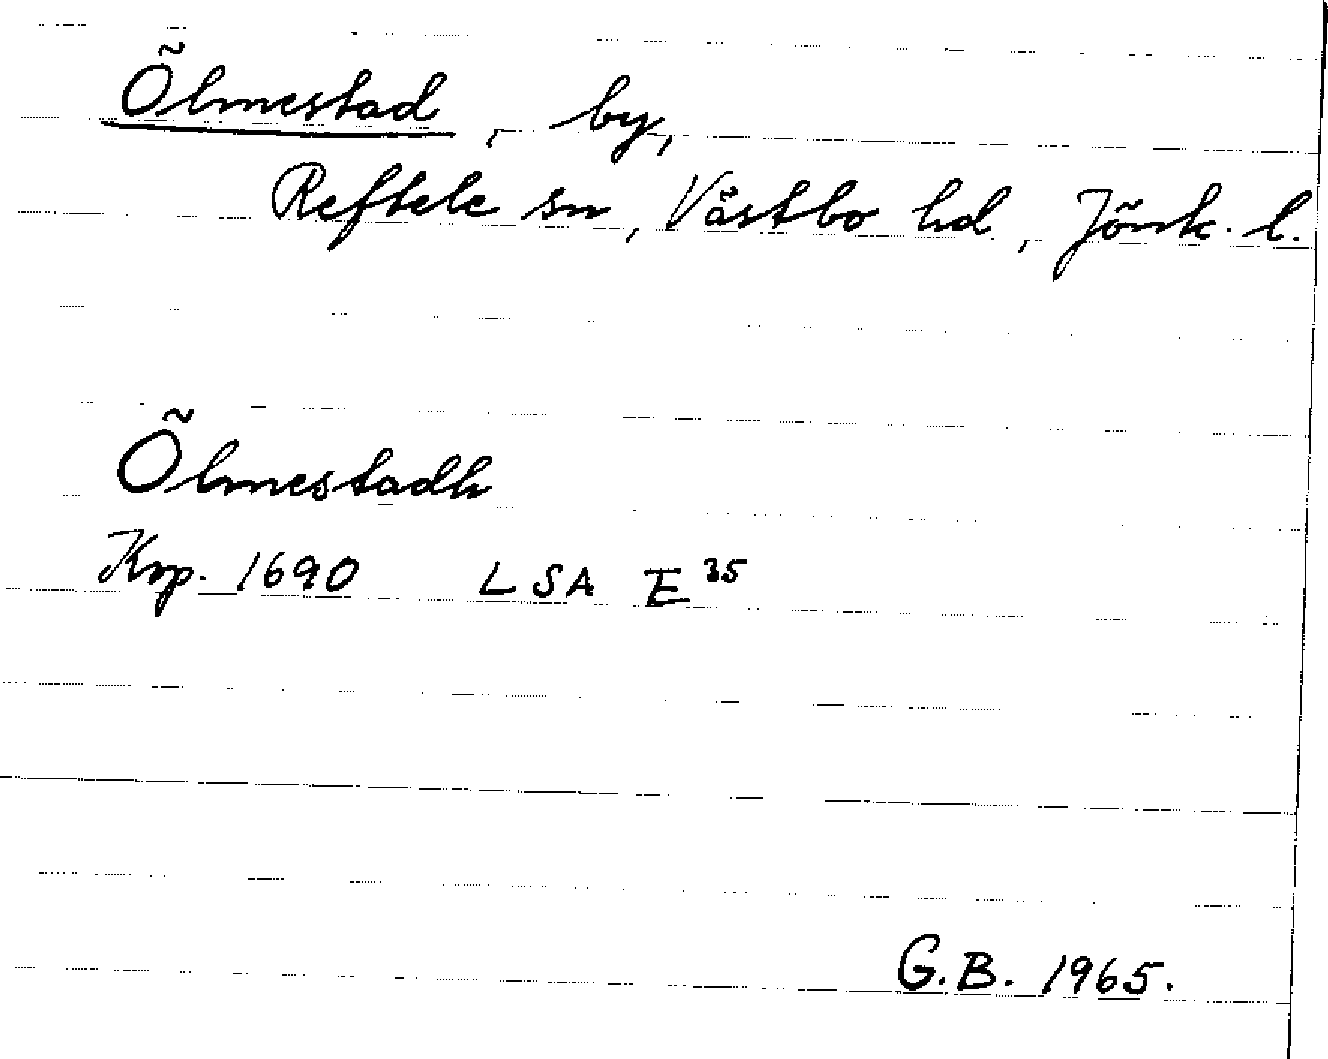 Ölmestad, by,
Reftele sn, Västbo hd, Jönk. l.
Ölmestadh
Kop. 1690 LSA E 35
G.B. 1965.